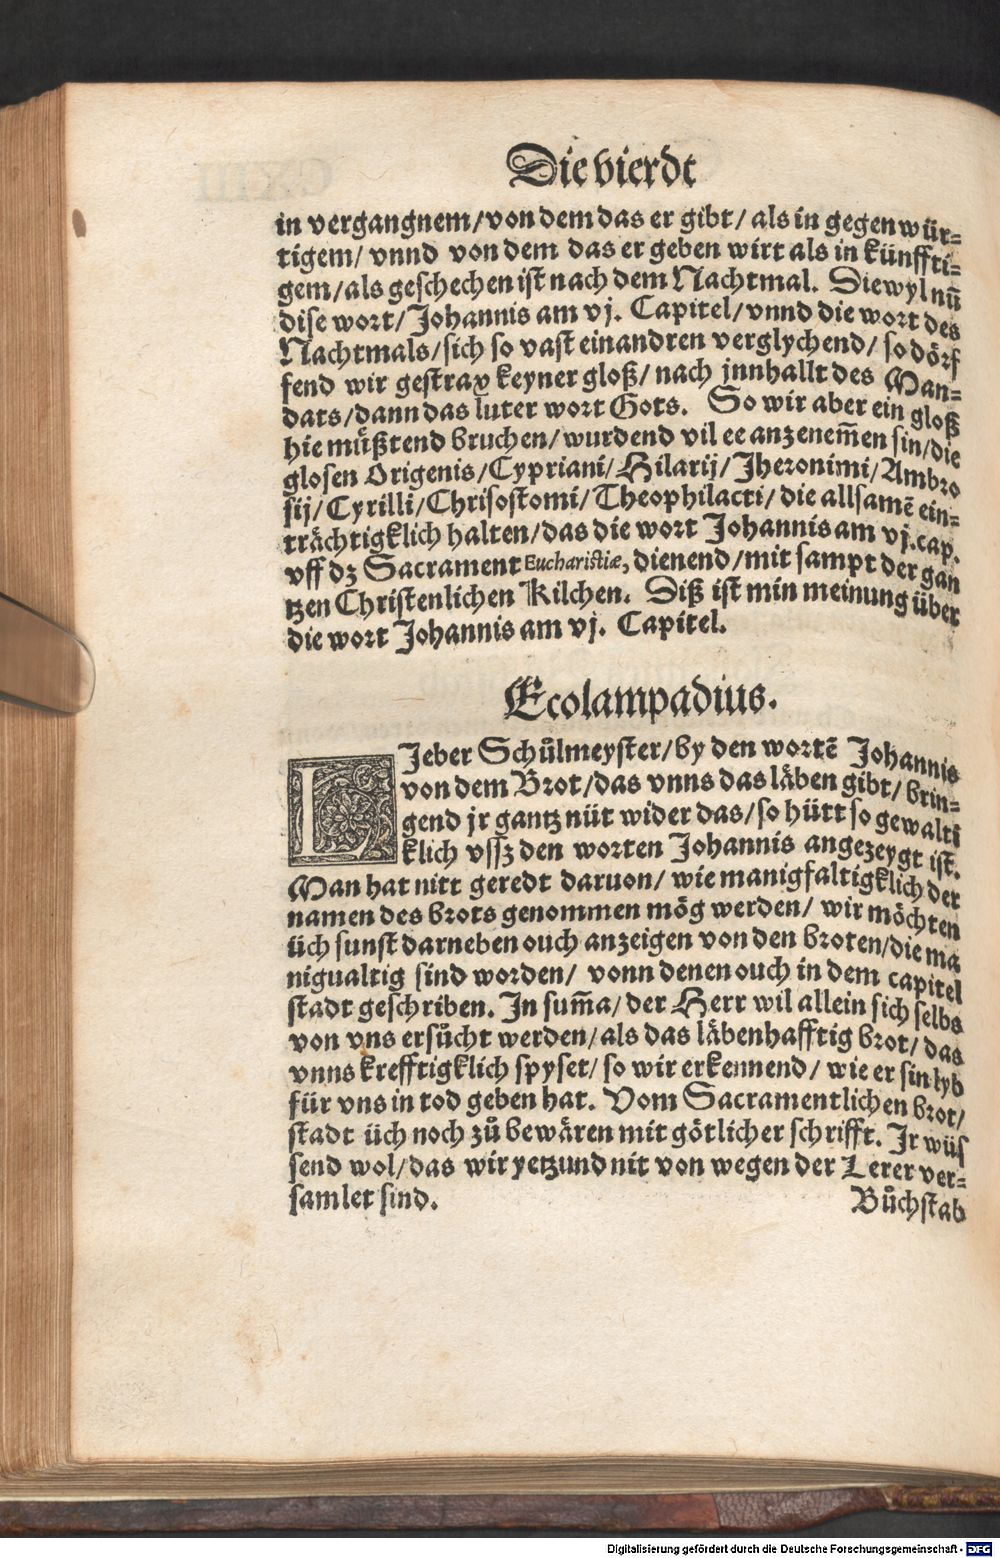 Die vierdt
in vergangnem/von dem das er gibt/ als in gegenwür-
tigem/ vnnd von dem das er geben wirt als in künffti-
gem/als geschechen ist nach dem Nachtmal. Diewyl nū
dise wort/Johannis am vj. Capitel/vnnd die wort des
Nachtmals/sich so vast einandren verglychend/ so dörf
fend wir gestrax keyner gloß/ nach jnnhallt des Man-
dats/dann das luter wort Gots. So wir aber ein gloß
hie müßtend bruchen/wurdend vil ee anzenem̃en sin/die
glosen Origenis/Cypriani/Hilarij/Jheronimi/Ambro
sij/Cyrilli/Chrisostomi/Theophilacti/die allsamē ein-
trächtigklich halten/das die wort Johannis am vj.cap.
vff dz Sacrament Euchariſtiæ, dienend/mit sampt der gan
tzen Christenlichen Kilchen. Diß ist min meinung über
die wort Johannis am vj. Capitel.
Ecolampadius.
LJeber Schůlmeyster/by den wortē Johannis
von dem Brot/das vnns das läben gibt/ brin-
gend jr gantz nüt wider das/so hütt so gewalti
klich vssz den worten Johannis angezeygt ist.
Man hat nitt geredt daruon/ wie manigfaltigklich der
namen des brots genommen mög werden/ wir möchten
üch sunst darneben ouch anzeigen von den broten/die ma
nigualtig sind worden/ vonn denen ouch in dem capitel
stadt geschriben. In sum̃a/der Herr wil allein sich selbs
von vns ersůcht werden/als das läbenhafftig brot/ das
vnns krefftigklich spyset/ so wir erkennend/ wie er sin lyb
für vns in tod geben hat. Vom Sacramentlichen brot/
stadt üch noch zů bewären mit götlicher schrifft. Jr wüs
send wol/das wir yetzund nit von wegen der Lerer ver-
samlet sind.
Bůchstab
Digitalisierung gefördert durch die Deutsche Forschungsgemeinschaft - DFG